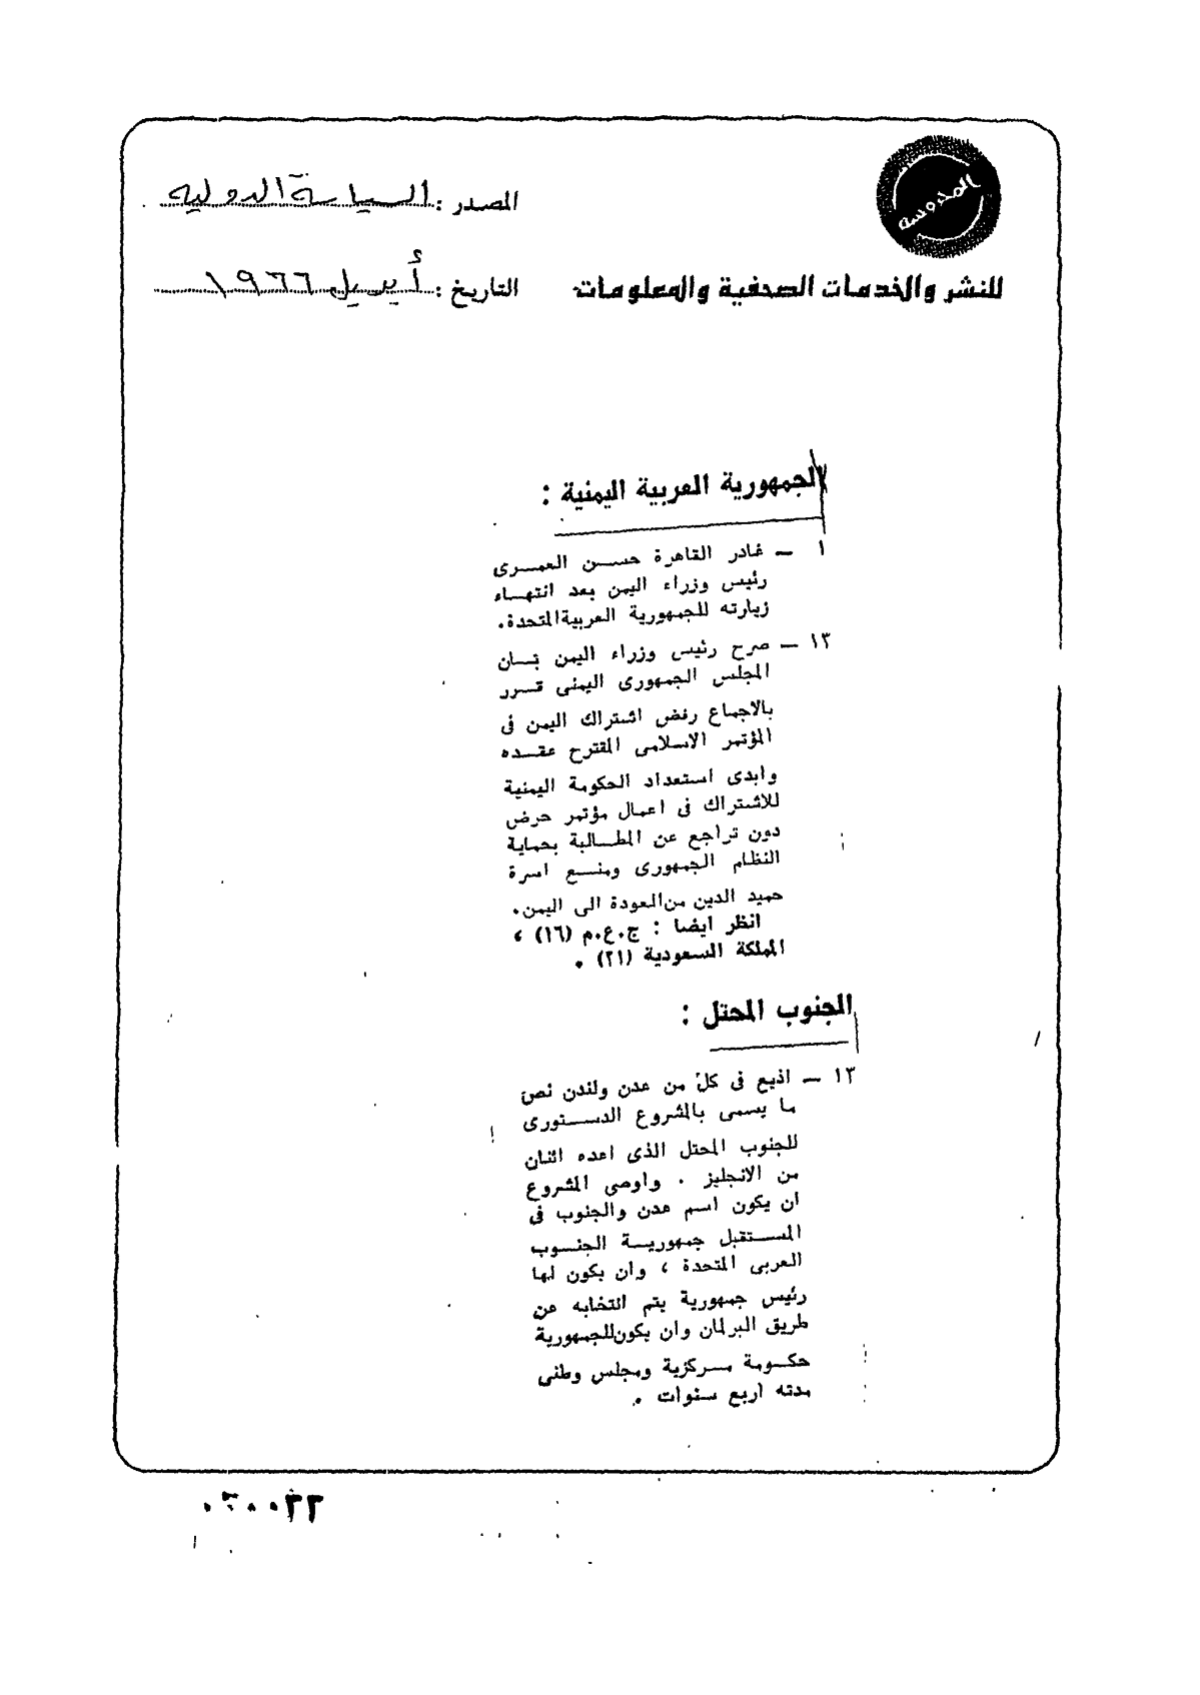 المحروسة
المصدر : السياسة الدولية
للنشر والخدمات الصحفية والمعلومات
التاريخ : أبريل ١٩٦٦
الجمهورية العربية اليمنية :
١ – غادر القاهرة حسن العمرى
رئيس وزراء اليمن بعد انتهاء
زيارته للجمهورية العربية المتحدة.
١٣ – صرح رئيس وزراء اليمن بان
المجلس الجمهورى اليمنى قرر
بالاجماع رفض اشتراك اليمن فى
المؤتمر الاسلامى المقترح عقده
وابدى استعداد الحكومة اليمنية
للاشتراك فى اعمال مؤتمر حرض
دون تراجع عن المطالبة بحماية
النظام الجمهورى ومنع اسرة
حميد الدين من العودة الى اليمن.
انظر ايضا : ج.ع.م (١٦) ،
المملكة السعودية (٢١) .
الجنوب المحتل :
١٣ – اذيع فى كل من عدن ولندن نص
ما يسمى بالمشروع الدستورى
للجنوب المحتل الذى اعده اثنان
من الانجليز . واوصى المشروع
ان يكون اسم عدن والجنوب فى
المستقبل جمهورية الجنوب
العربى المتحدة ، وان يكون لها
رئيس جمهورية يتم انتخابه عن
طريق البرلمان وان يكون للجمهورية
حكومة مركزية ومجلس وطنى
مدته اربع سنوات .